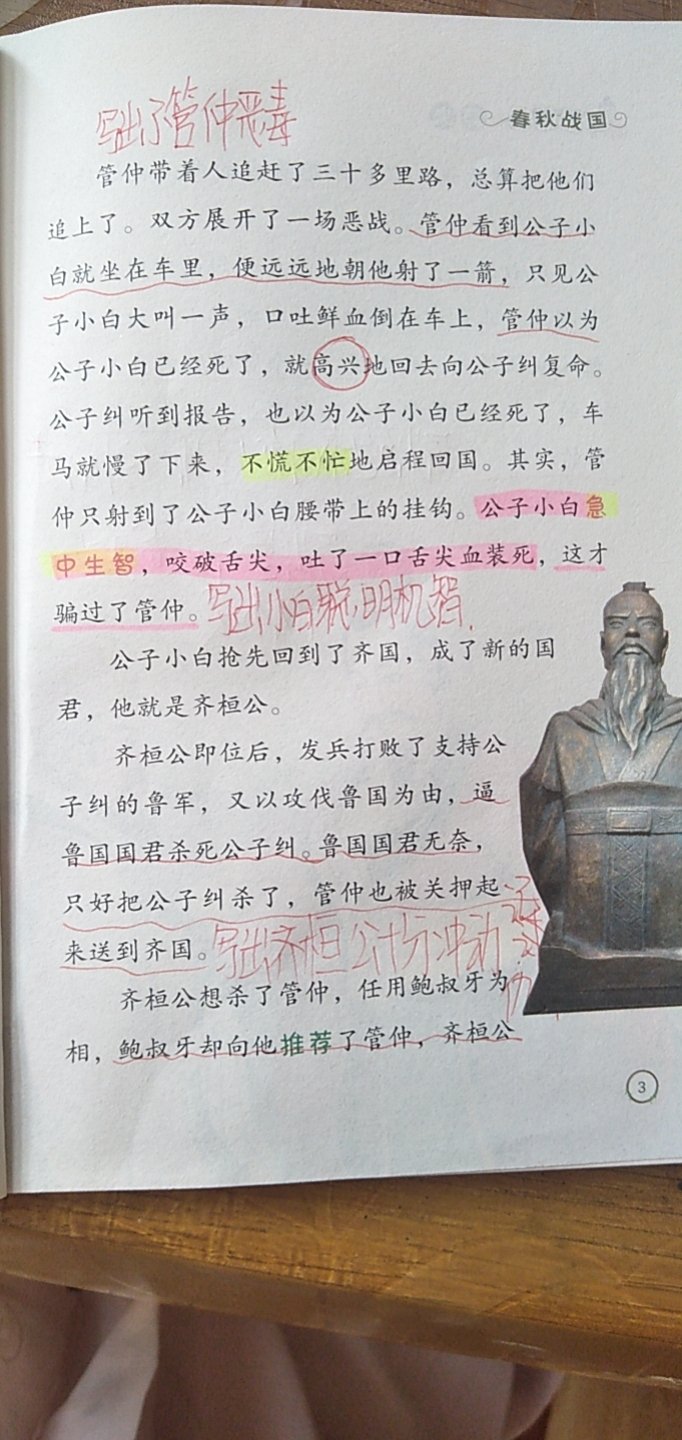 春秋战国
写出了管仲恶毒
管仲带着人追赶了三十多里路，总算把他们
追上了。双方展开了一场恶战。管仲看到公子小
白就坐在车里，便远远地朝他射了一箭，只见公
子小白大叫一声，口吐鲜血倒在车上，管仲以为
公子小白已经死了，就高兴地回去向公子纠复命。
公子纠听到报告，也以为公子小白已经死了，车
马就慢了下来，不慌不忙地启程回国。其实，管
仲只射到了公子小白腰带上的挂钩。公子小白急
中生智，咬破舌尖，吐了一口舌尖血装死，这才
骗过了管仲。写出小白聪明机智.
公子小白抢先回到了齐国，成了新的国
君，他就是齐桓公。
齐桓公即位后，发兵打败了支持公
子纠的鲁军，又以攻伐鲁国为由，逼
鲁国国君杀死公子纠。鲁国国君无奈，
只好把公子纠杀了，管仲也被关押起
来送到齐国。写出齐桓公十分冲动
齐桓公想杀了管仲，任用鲍叔牙为
相，鲍叔牙却向他推荐了管仲，齐桓公
3